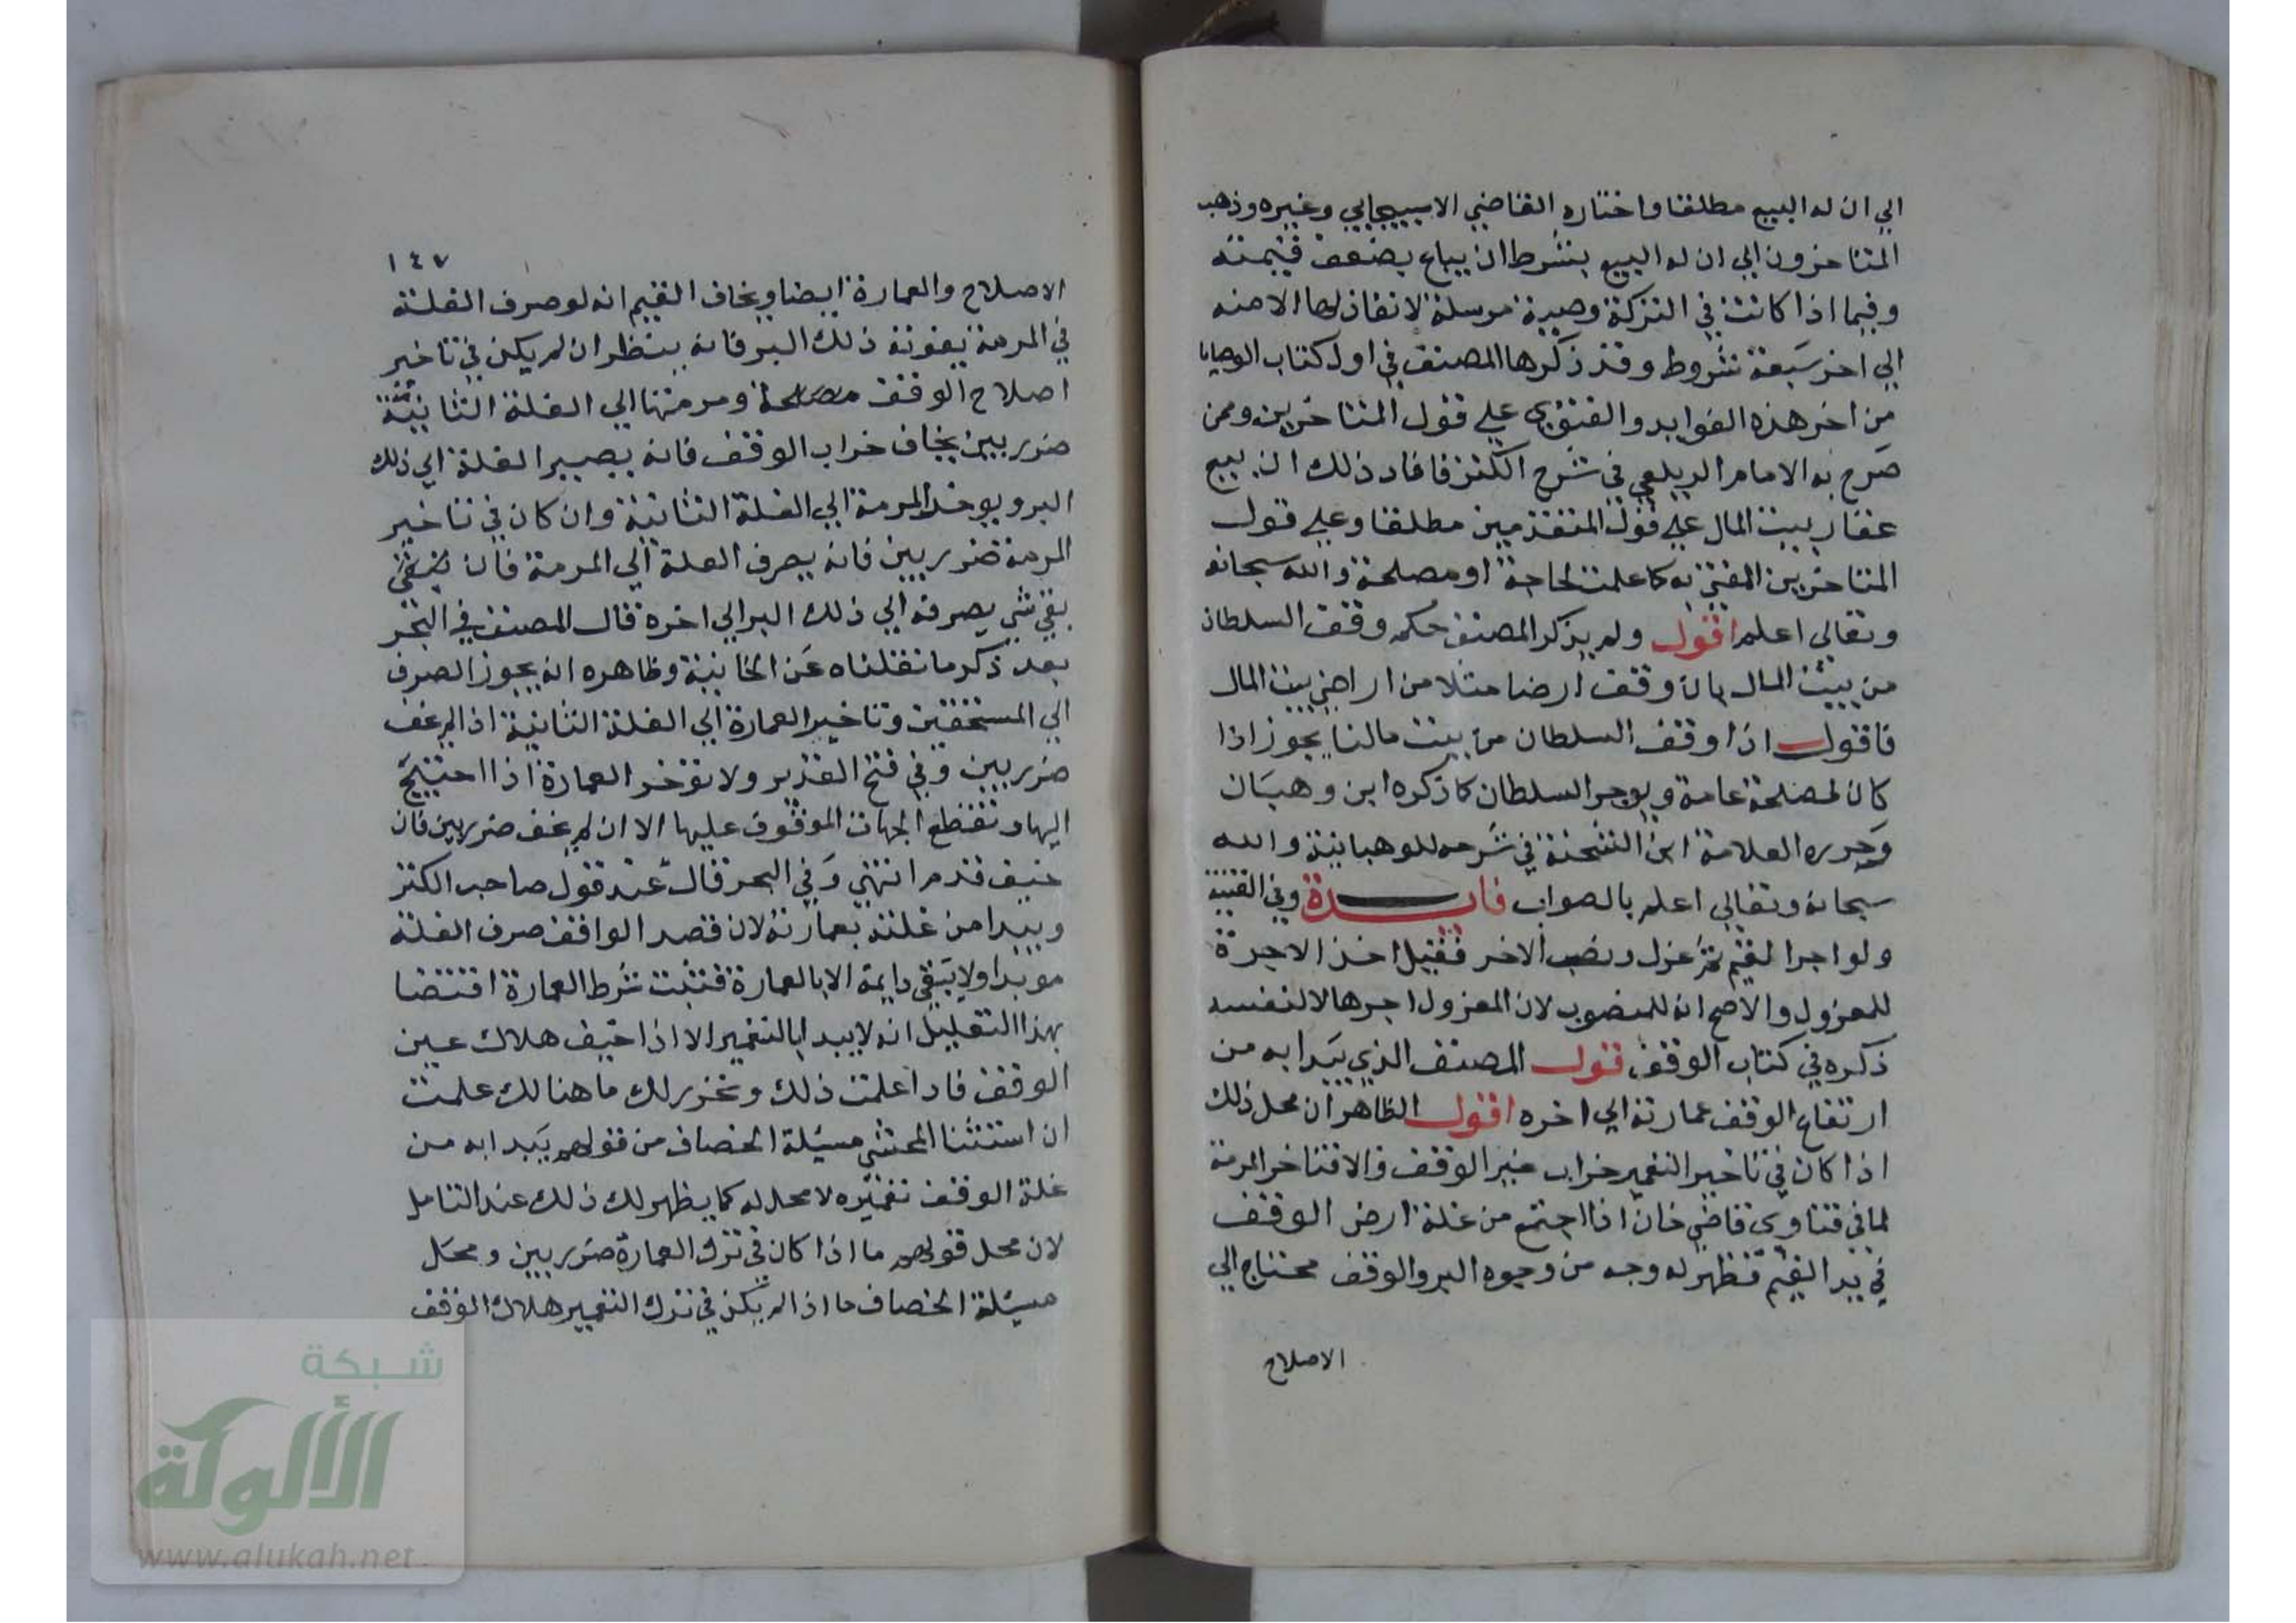 الي ان له البيع مطلقا واختاره القاضي الاسبيجابي وغيره وذهب
المتاخرون الي ان له البيع بشرط ان يباع بضعف قيمته
وفيما اذا كانت في التركة وصية مرسلة لا نفاذ لها الا منه
الي اخر سبعة شروط وقد ذكرها المصنف في اول كتاب الوصايا
من اخر هذه الفوايد والفتوي علي قول المتاخرين وممن
صرح به الامام الزيلعي في شرح الكنز فافاد ذلك ان بيع
عقار بيت المال علي قول المتقدمين مطلقا وعلي قول
المتاخرين المفتي به كما علمت لحاجة او مصلحة والله سبحانه
وتعالي اعلم اقول ولم يذكر المصنف حكم وقف السلطان
من بيت المال بان وقف ارضا مثلا من اراضي بيت المال
فاقول اذا وقف السلطان من بيت مالنا يجوز اذا
كان لمصلحة عامة ويوجر السلطان كما ذكره ابن وهبان
وحرره العلامة ابن الشحنة في شرحه للوهبانية والله
سبحانه وتعالي اعلم بالصواب فايدة وفي القنية
ولو اجر القيم ثم عزل ونصب الاخر فقيل اخذ الاجرة
للمعزول والاصح انه للمنصوب لان المعزول اجرها لا لنفسه
ذكره في كتاب الوقف قول المصنف الذي يبدا به من
ارتفاع الوقف عمارته الي اخره اقول الظاهر ان محل ذلك
اذا كان في تاخير التعمير خراب عين الوقف والا فتاخر المرمة
لما في فتاوي قاضي خان اذا اجتمع من غلة ارض الوقف
في يد القيم فظهر له وجه من وجوه البر والوقف محتاج الي
الاصلاح
١٤٧
الاصلاح والعمارة ايضا ويخاف القيم انه لو صرف الغلة
في المرمة يفوته ذلك البر فانه ينظر ان لم يكن في تاخير
اصلاح الوقف مصلحة ومرمتها الي الغلة الثانية
ضرر بين يخاف خراب الوقف فانه يصير الغلة الي ذلك
البر ويوخر المرمة الي الغلة الثانية وان كان في تاخير
المرمة ضرر بين فانه يصرف الغلة الي المرمة فان
بقي شي يصرفه الي ذلك البر الي اخره قال المصنف في البحر
بعد ذكر ما نقلناه عن الخانية وظاهره انه يجوز الصرف
الي المستحقين وتاخير العمارة الي الغلة الثانية اذا لم يخف
ضرر بين وفي فتح القدير ولا توخر العمارة اذا احتيج
اليها وتقطع الجهات الموقوف عليها الا ان لم يخف ضرر بين فان
خيف قدم انتهي وفي البحر قال عند قول صاحب الكنز
ويبدا من غلته بعمارته لان قصد الواقف صرف الغلة
موبدا ولا يبقي دايمة الا بالعمارة فتثبت شرط العمارة اقتضا
بهذا التعليل انه لا يبدا بالتعمير الا اذا خيف هلاك عين
الوقف فاد اعلمت ذلك وتحرر لك ما هنالك علمت
ان استثنا المحشي مسيلة الخصاف من قولهم يبدا به من
غلة الوقف تعميره لا محل له كما يظهر لك ذلك عند التامل
لان محل قولهم ما اذا كان في ترك العمارة ضرر بين ومحل
مسيلة الخصاف ما اذا لم يكن في ترك التعمير هلاك الوقف
شبكة
الألوكة
www.alukah.net